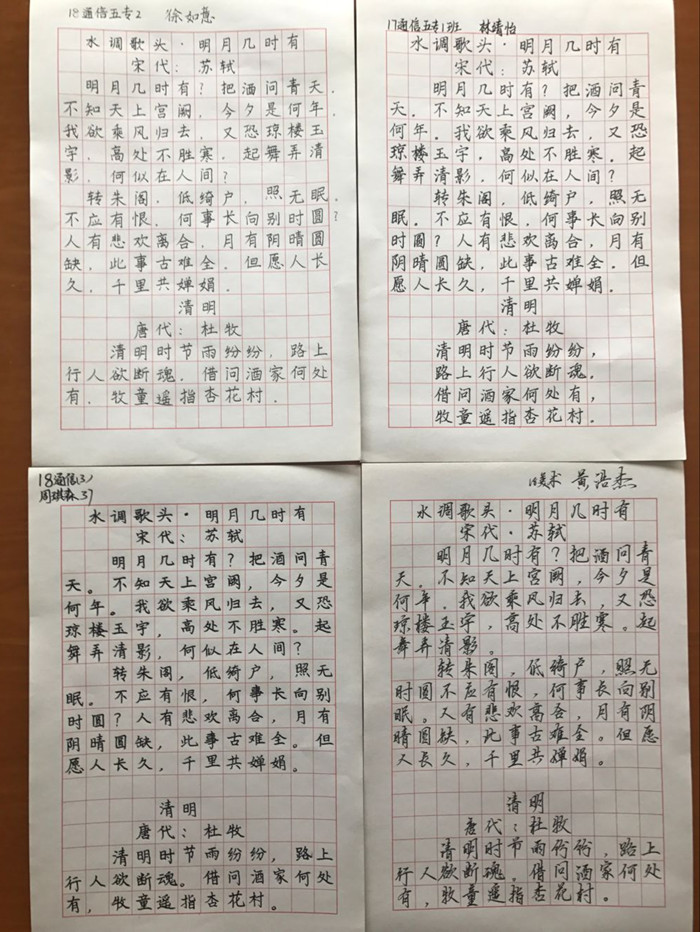 18通信五专2 徐如慧
水调歌头·明月几时有
宋代：苏轼
明月几时有？把酒问青天。
不知天上宫阙，今夕是何年。
我欲乘风归去，又恐琼楼玉
宇，高处不胜寒。起舞弄清
影，何似在人间？
转朱阁，低绮户，照无眠。
不应有恨，何事长向别时圆？
人有悲欢离合，月有阴晴圆
缺，此事古难全。但愿人长
久，千里共婵娟。
清明
唐代：杜牧
清明时节雨纷纷，路上
行人欲断魂。借问酒家何处
有，牧童遥指杏花村。
17通信五专1班 林靖怡
水调歌头·明月几时有
宋代：苏轼
明月几时有？把酒问青
天。不知天上宫阙，今夕是
何年。我欲乘风归去，又恐
琼楼玉宇，高处不胜寒。起
舞弄清影，何似在人间？
转朱阁，低绮户，照无
眠。不应有恨，何事长向别
时圆？人有悲欢离合，月有
阴晴圆缺，此事古难全。但
愿人长久，千里共婵娟。
清明
唐代：杜牧
清明时节雨纷纷，
路上行人欲断魂。
借问酒家何处有，
牧童遥指杏花村．
18通信(3)
周琪森37
水调歌头·明月几时有
宋代：苏轼
明月几时有？把酒问青
天。不知天上宫阙，今夕是
何年。我欲乘风归去，又恐
琼楼玉宇，高处不胜寒。起
舞弄清影，何似在人间？
转朱阁，低绮户，照无
眠。不应有恨，何事长向别
时圆？人有悲欢离合，月有
阴晴圆缺，此事古难全。但
愿人长久，千里共婵娟。
清明
唐代：杜牧
清明时节雨纷纷，路上
行人欲断魂。借问酒家何处
有，牧童遥指杏花村。
黄浩杰
水调歌头·明月几时有
宋代·苏轼
明月几时有？把酒问青
天。不知天上宫阙，今夕是
何年，我欲乘风归去，又恐
琼楼玉宇，高处不胜寒。起
舞弄清影。
转朱阁，低绮户，照无
时圆不应有恨，何事长向别
眠。人有悲欢离合，月有阴
晴圆缺，此事古难全。但愿
人长久，千里共婵娟。
清明
唐代：杜牧
清明时节雨纷纷，路上
行人欲断魂。借问酒家何处
有，牧童遥指杏花村。